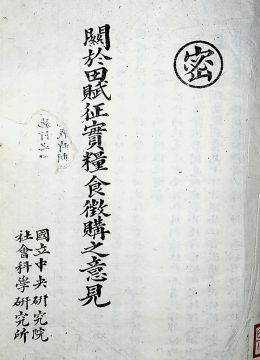 密
關於田賦征實糧食徵購之意見
國立中央研究院
社會科學研究所